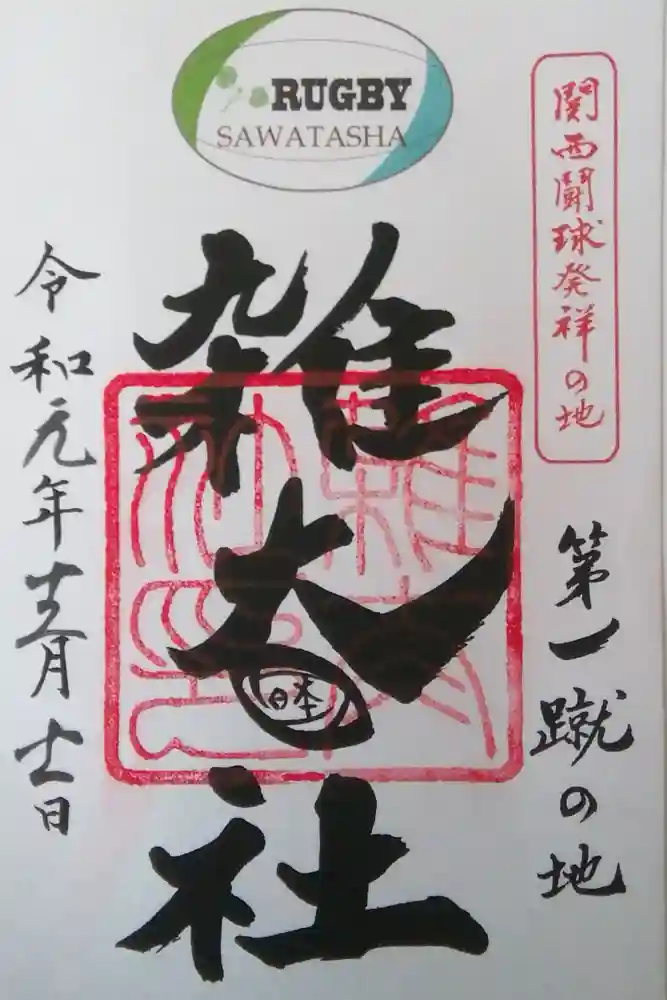 RUGBY
SAWATASHA
関西闘球発祥の地
第一蹴の地
雑太社
日本
雑太
社印
令和元年十二月十一日